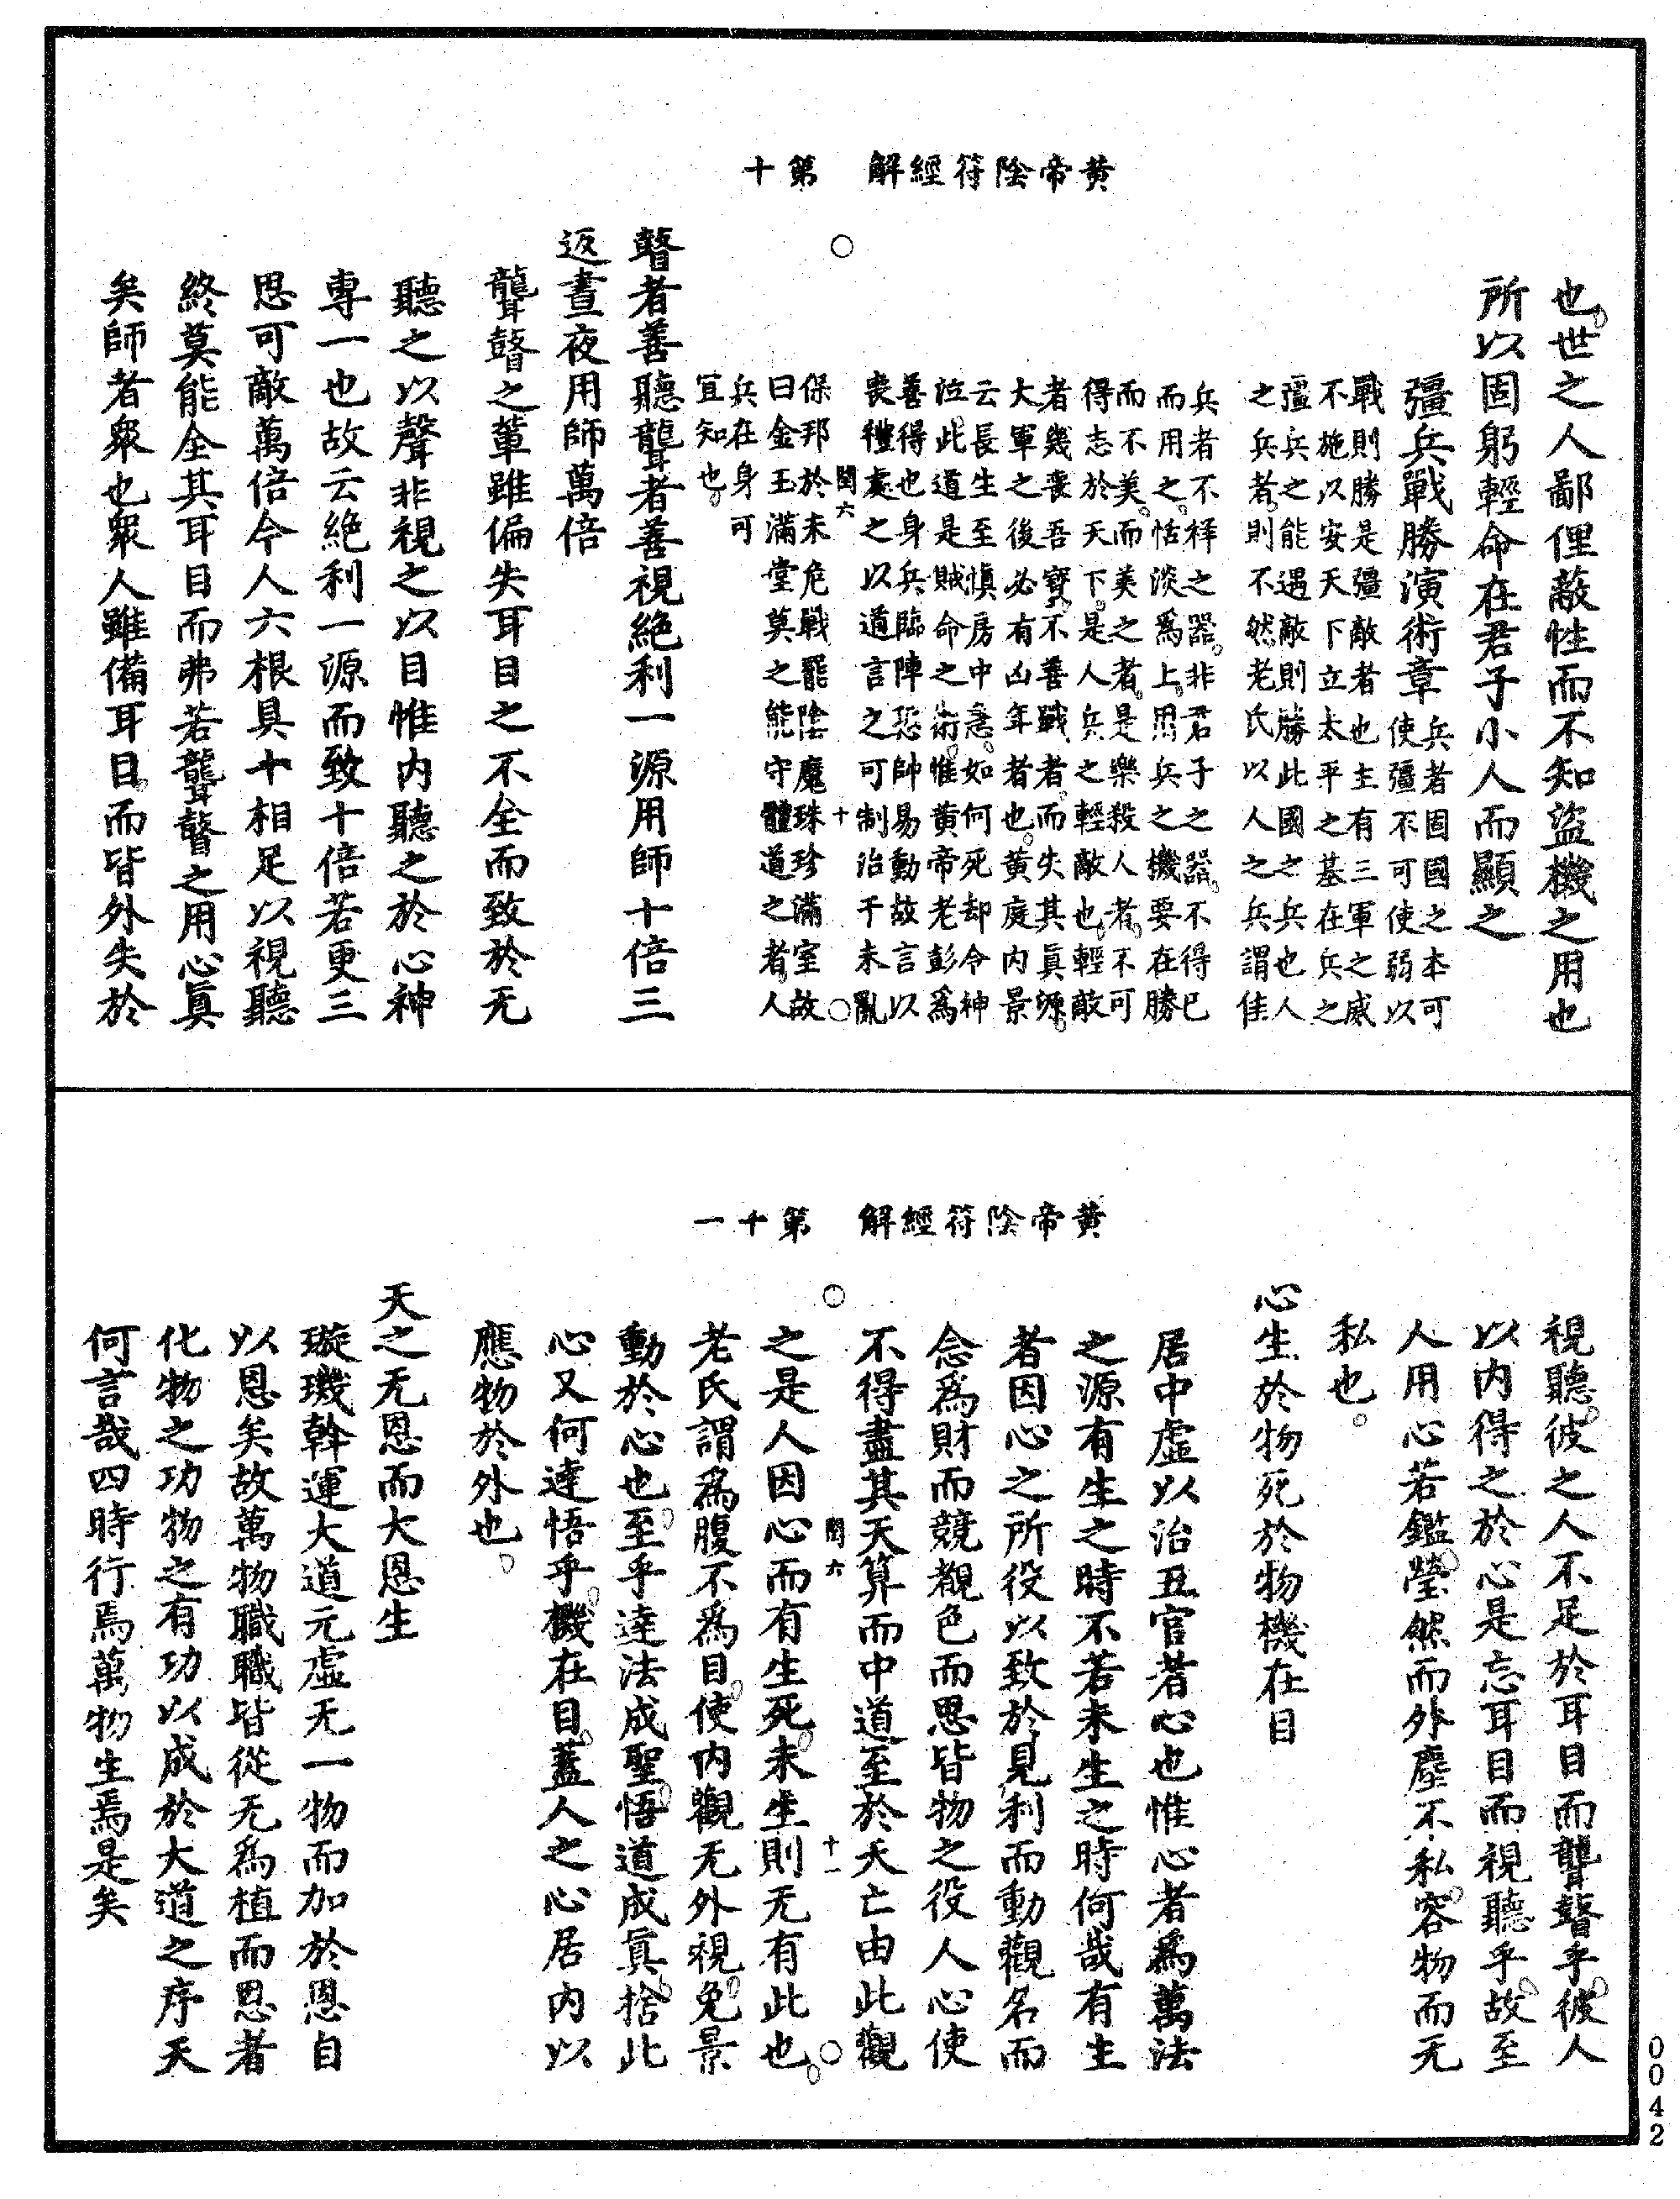 黄帝陰符經解　第十
也世之人鄙俚蔽性而不知盜機之用也
所以固躬輕命在君子小人而顯之
彊兵戰勝演術章
兵者固國之本可
使彊不可使弱以
戰則勝是彊敵者也主有三軍之威
不施以安天下立太平之基在兵之
彊兵之能遇敵則勝此國之兵也人
之兵者則不然老氏以人之兵謂佳
兵者不祥之器非君子之器不得已
而用之恬淡爲上用兵之機要在勝
而不美而美之者是樂殺人者不可
得志於天下是人兵之輕敵也輕敵
者幾喪吾寶不善戰者而失其眞源
大軍之後必有凶年者也黄庭内景
云長生至慎房中急如何死却令神
泣此道是賊命之術惟黄帝老彭爲
善得也身兵臨陣恐帥易動故言以
喪禮處之以道言之可制治于未亂
閏六　十
保邦於未危戰罷陰魔珠珍滿室故
曰金玉滿堂莫之能守體道之者人
兵在身可
宜知也
瞽者善聽聾者善視絶利一源用師十倍三
返晝夜用師萬倍
聾瞽之輩雖偏失耳目之不全而致於无
聽之以聲非視之以目惟内聽之於心神
專一也故云絶利一源而致十倍若更三
思可敵萬倍今人六根具十相足以視聽
終莫能全其耳目而弗若聾瞽之用心眞
矣師者衆也衆人雖備耳目而皆外失於
黄帝陰符經解　第十一
視聽彼之人不足於耳目而聾瞽乎彼人
以内得之於心是忘耳目而視聽乎故至
人用心若鑑瑩然而外塵不私容物而无
私也
心生於物死於物機在目
居中虛以治五官者心也惟心者爲萬法
之源有生之時不若未生之時何哉有生
者因心之所役以致於見利而動觀名而
念爲財而競觀色而思皆物之役人心使
不得盡其天算而中道至於夭亡由此觀
閏六　十一
之是人因心而有生死未生則无有此也
老氏謂爲腹不爲目使内觀无外視免景
動於心也至乎達法成聖悟道成眞捨此
心又何達悟乎機在目蓋人之心居内以
應物於外也
天之无恩而大恩生
璇璣斡運大道元虛无一物而加於恩自
以恩矣故萬物職職皆從无爲植而恩者
化物之功物之有功以成於大道之序天
何言哉四時行焉萬物生焉是矣
0042